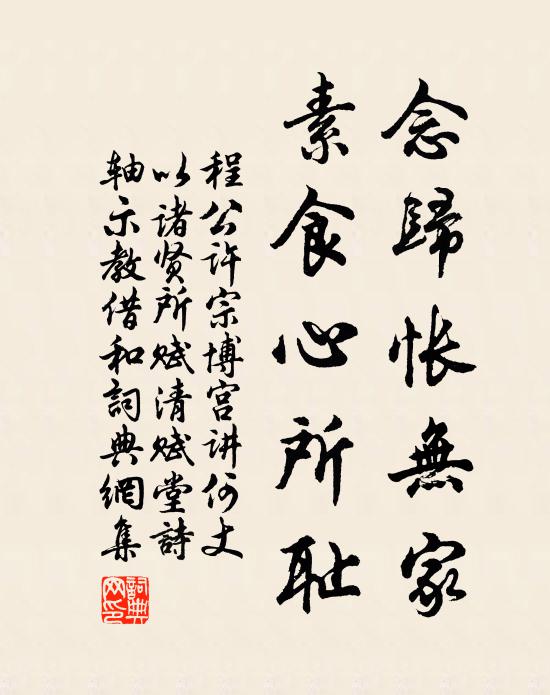 念歸怅無家
素食心所耻
程公许宗博宫讲何丈
以诸贤所赋清赋堂詩
轴示教借和詞典網集
詞典網印